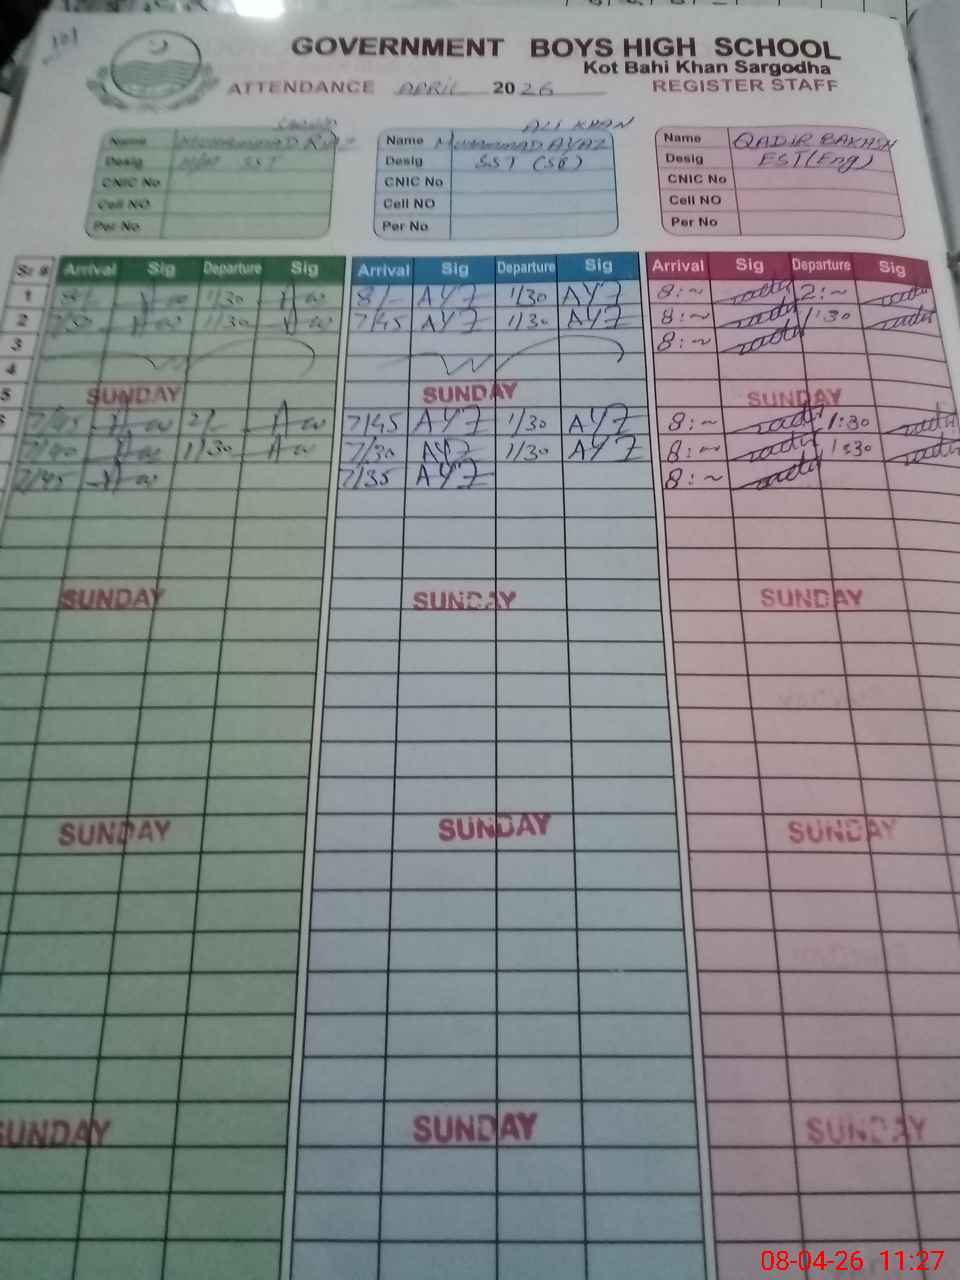 GOVERNMENT BOYS HIGH SCHOOL
Kot Bahi Khan Sargodha
ATTENDANCE APRIL 2026 REGISTER STAFF
Name MUHAMMAD RIAZ
Desig SST
CNIC No
Cell NO
Per No
ALI KHAN
Name MUHAMMAD AYAZ
Desig SST (SE)
CNIC No
Cell NO
Per No
Name QADIR BAKHSH
Desig EST (Eng)
CNIC No
Cell NO
Per No
Sr # Arrival Sig Departure Sig Arrival Sig Departure Sig Arrival Sig Departure Sig
1 8/- 1/30 8/- AYZ 1/30 AYZ 8:~ 2:~
2 1/30 7/45 AYZ 1/30 AYZ 8:~ 1:30
3 8:~
4
5 SUNDAY SUNDAY SUNDAY
6 7/45 2/- 7/45 AYZ 1/30 AYZ 8:~ 1:30
7/40 1/30 7/30 AYZ 1/30 AYZ 8:~ 1:30
7/45 7/35 AYZ 8:~
SUNDAY SUNDAY SUNDAY
SUNDAY SUNDAY SUNDAY
SUNDAY SUNDAY SUNDAY
08-04-26 11:27